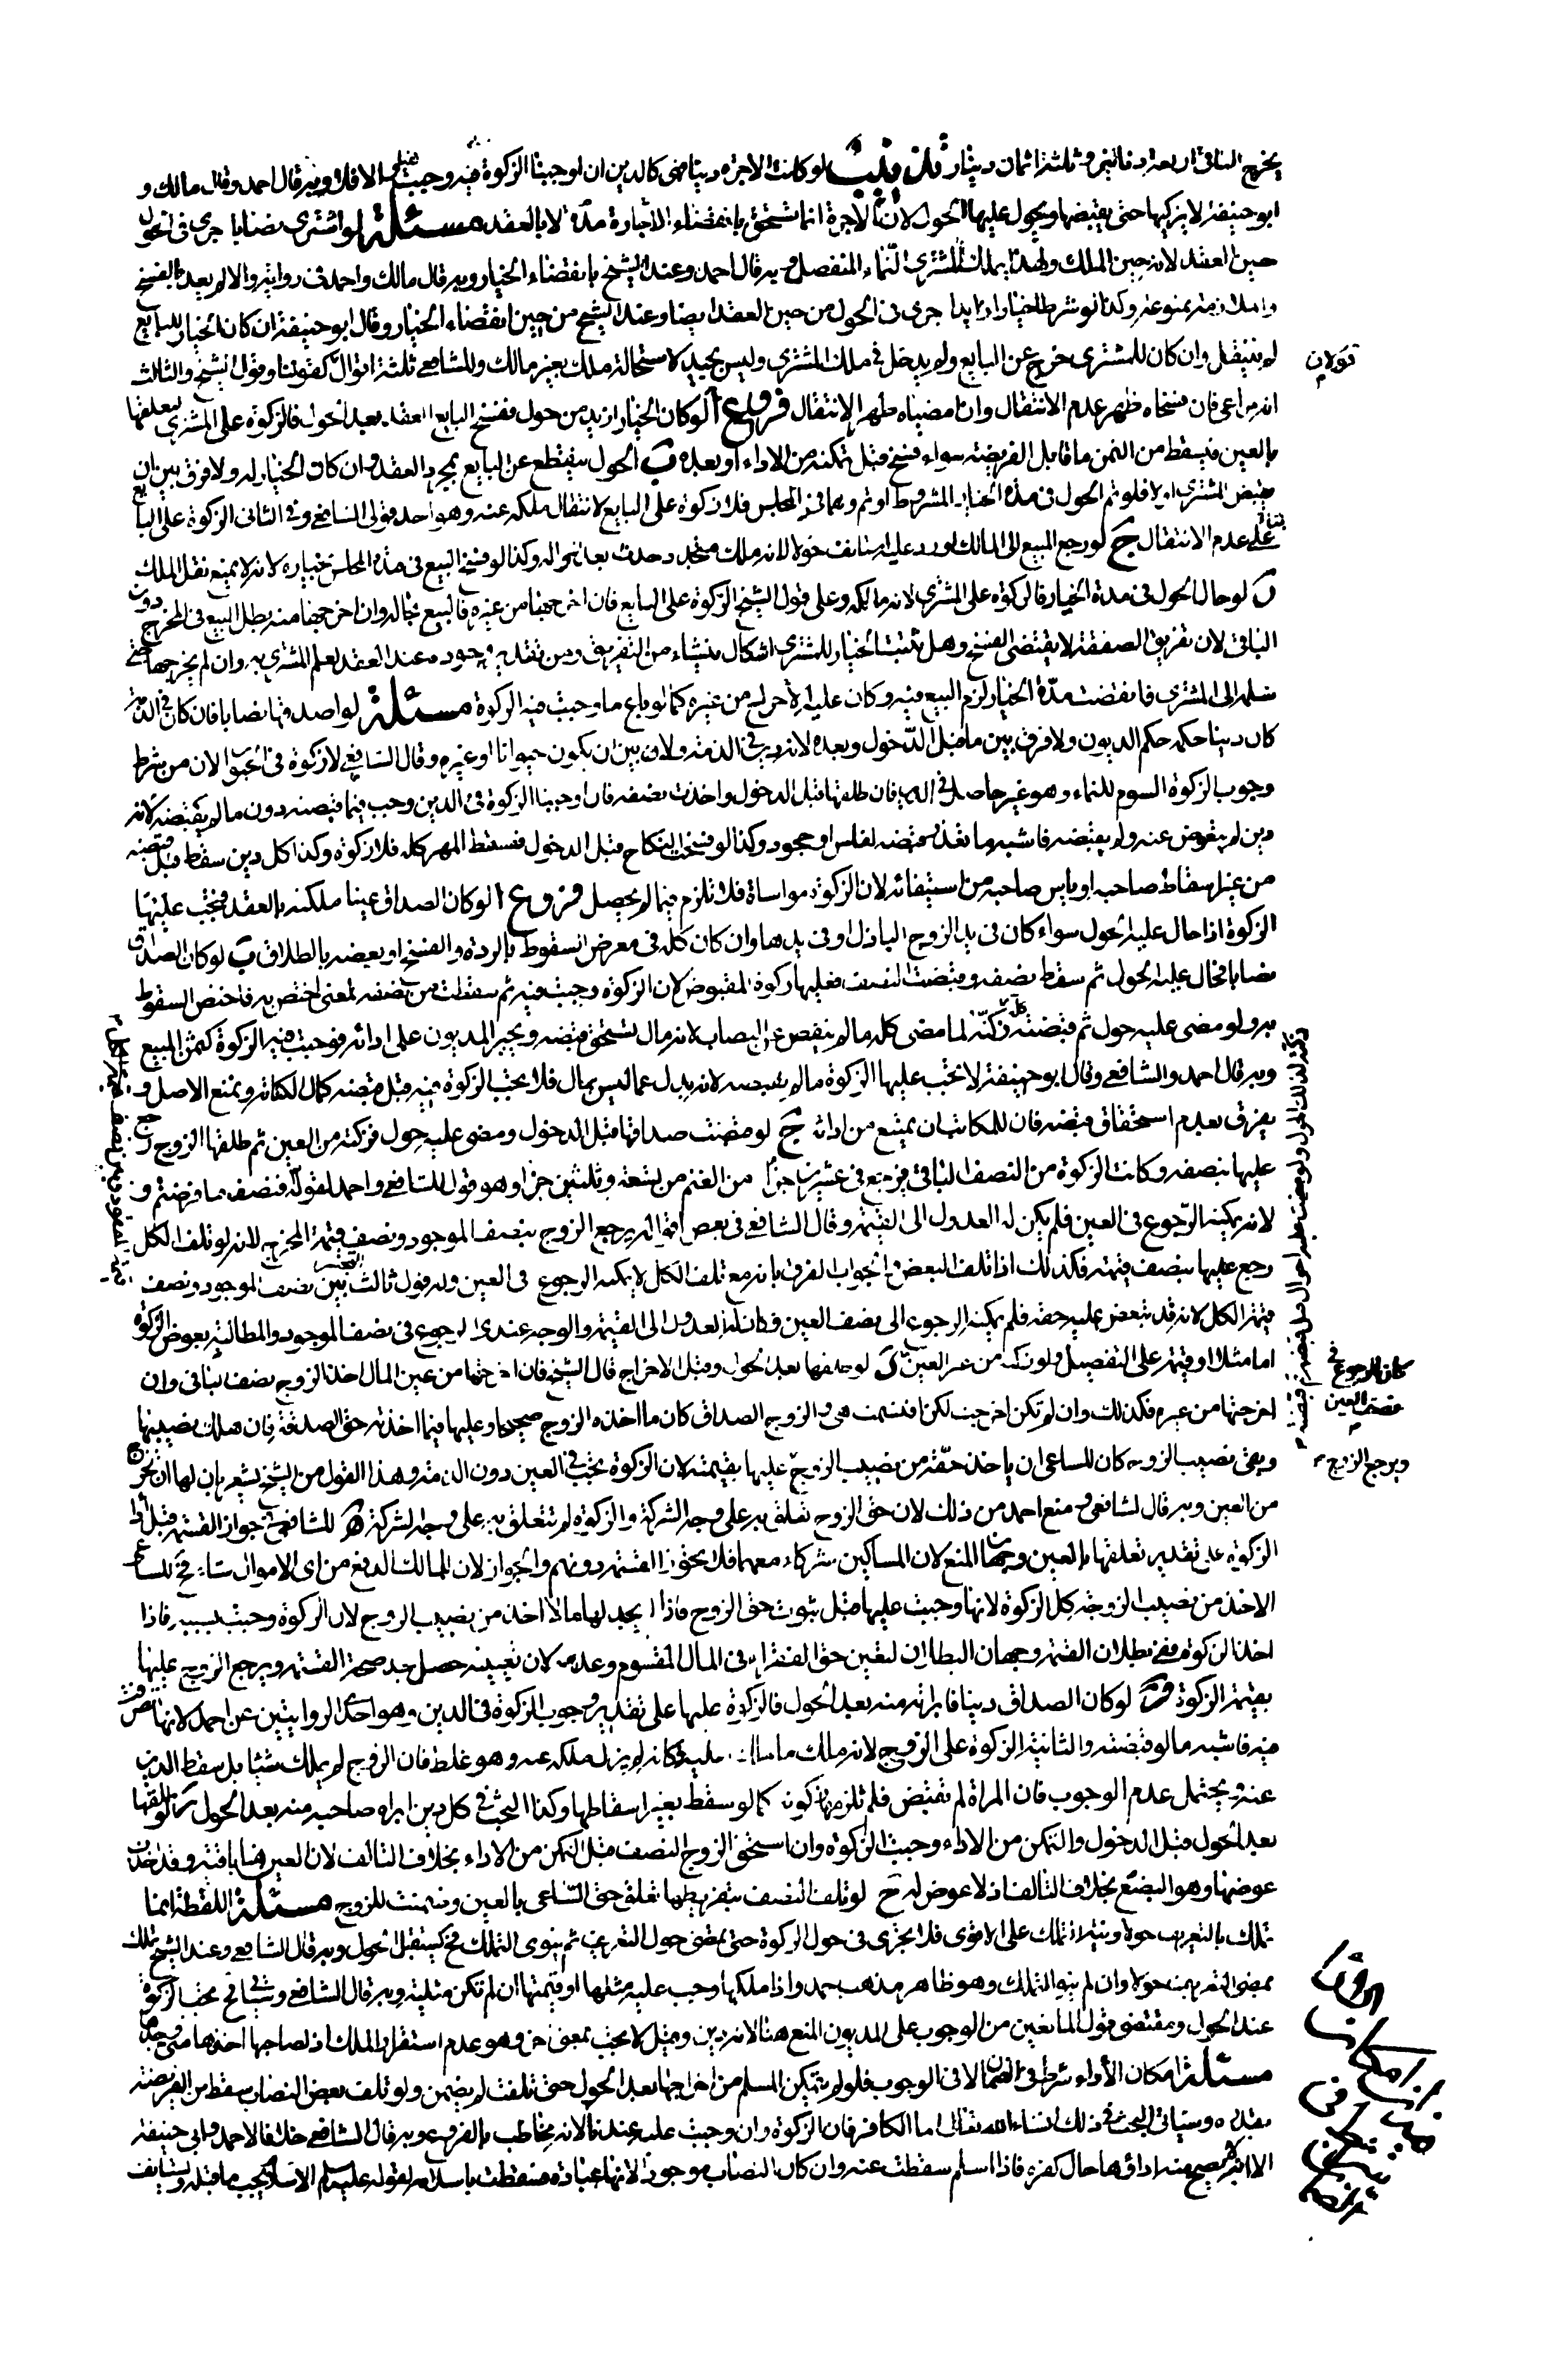 يخرج الباقى اربعة دنانير وثلثة اثمان دينار تذنيب لو كانت الاجرة دينا فهى كالدين ان اوجبنا الزكوة فيه وجبت هنا والا فلا وبه قال احمد وقال مالك و
ابو حنيفة لا يزكيها حتى يقبضها ويحول عليها الحول لان الاجرة انما تستحق بانقضاء الاجارة مدة لا بالعقد مسئلة لو اشترى نصابا جرى فى الحول
حين العقد لانه حين الملك ولهذا يملك المشترى النماء المنفصل وبه قال احمد وعند الشيخ بانقضاء الخيار وبه قال مالك واحمد فى رواية والا لم يعد بالفسخ
والملازمة ممنوعة وكذا لو شرط الخيار زايدا جرى فى الحول من حين العقد ايضا وعند الشيخ من حين انقضاء الخيار وقال ابو حنيفة ان كان الخيار للبايع
لم ينتقل وان كان للمشترى خرج عن البايع ولم يدخل فى ملك المشترى وليس بجيد لاستحالة ملك بغير مالك وللشافعى ثلثة اقوال كقولنا وقول الشيخ والثالث
انه مراعى فان فسخاه ظهر عدم الانتقال وان امضياه ظهر الانتقال فروع ا لو كان الخيار ازيد من حول ففسخ البايع العقد بعد الحول فالزكوة على المشترى لتعلقها
بالعين فيسقط من الثمن ما قابل الفريضة سواء فسخ قبل تمكنه من الاداء او بعده ب الحول ينقطع عن البايع بمجرد العقد وان كان الخيار له ولا فرق بين ان
يقبض المشترى او لا فلو تم الحول فى مدة الخيار المشروط او تم وهما فى المجلس فلا زكوة على البايع لانتقال ملكه عنه وهو احد قولى الشافعى وفى الثانى الزكوة على البايع
بناء على عدم الانتقال ج لو رجع المبيع الى المالك او رد عليه استانف حولا لانه ملك متجدد حدث بعد زواله وكذا لو فسخ البيع فى مدة المجلس بخياره لانه لا يمنع نقل الملك
د لو حال الحول فى مدة الخيار فالزكوة على المشترى لانه مالكه وعلى قول الشيخ الزكوة على البايع فان اخرجها من غيره فالبيع بحاله وان اخرجها منه بطل البيع فى المخرج دون
الباقى لان تفريق الصفقة لا يقتضى الفسخ وهل يثبت الخيار للمشترى اشكال ينشاء من التفريق ومن تقدير وجوده عند العقد لعلم المشترى به وان لم يخرجها حتى
سلمه الى المشترى فانقضت مدة الخيار لزم البيع فيه وكان عليه الاخراج من غيره كما لو باع ما وجبت فيه الزكوة مسئلة لو اصدقها نصابا فان كان فى الذمة
كان دينا حكمه حكم الديون ولا فرق بين ما قبل الدخول وبعده لانه دين فى الذمة ولا بين ان يكون حيوانا او غيره وقال الشافعى لا زكوة فى الحيوان لان من شرط
وجوب الزكوة السوم للنماء وهو غير حاصل فى الدين فان طلقها قبل الدخول واخذت نصفه فان اوجبنا الزكوة فى الدين وجب فيما قبضته دون ما لم يقبضه لانه
دين لم يتعوض عنه ولم يقبضه فاشبه ما تعذر قبضه لفلس او جحود وكذا لو فسخت النكاح قبل الدخول فسقط المهر كله فلا زكوة وكذا كل دين سقط قبل قبضه
من غير اسقاط صاحبه او يأس صاحبه من استيفائه لان الزكوة مواساة فلا تلزم فيما لم يحصل فروع ا لو كان الصداق عينا ملكته بالعقد فتجب عليها
الزكوة اذا حال عليه الحول سواء كان فى يد الزوج الباذل او فى يدها وان كان كله فى معرض السقوط بالردة والفسخ او بعضه بالطلاق ب لو كان الصداق
نصابا فحال عليه الحول ثم سقط نصفه وقبضت النصف فعليها زكوة المقبوض لان الزكوة وجبت فيه ثم سقطت من نصفه لمعنى اختص به فاختص السقوط
به ولو مضى عليه حول ثم قبضته كله زكته لما مضى كله ما لم ينقص عن النصاب لانه مال تستحق قبضه ويجبر المديون على ادائه فوجبت فيه الزكوة كثمن المبيع
وبه قال احمد والشافعى وقال ابو حنيفة لا تجب عليها الزكوة ما لم يقبضه لانه بدل عما ليس بمال فلا تجب الزكوة فيه قبل قبضه كمال الكتابة ونمنع الاصل و
يفرق بعدم استحقاق قبضه فان للمكاتب ان يمتنع من ادائه ج لو قبضت صداقها قبل الدخول ومضى عليه حول فزكته من العين ثم طلقها الزوج رجع
عليها بنصفه وكانت الزكوة من النصف الباقى فيرجع فى عشرين جزا من الغنم من تسعة وثلثين جزا وهو قول للشافعى واحمد لقوله تعالى فنصف ما فرضتم و
لانه يمكنه الرجوع فى العين فلم يكن له العدول الى القيمة وقال الشافعى فى بعض اقواله يرجع الزوج بنصف الموجود ونصف قيمة المخرج لانه لو تلف الكل
رجع عليها بنصف قيمته فكذلك اذا تلف البعض والجواب الفرق بانه مع تلف الكل لا يمكنه الرجوع فى العين وله قول ثالث التخيير بين نصف الموجود ونصف
قيمة الكل لانه قد تبعض عليه حقه فلم يمكنه الرجوع الى نصف العين فكان له العدول الى القيمة والوجه عندى الرجوع فى نصف الموجود والمطالبة بعوض الزكوة
اما مثلا او قيمة على التفصيل ولو زكته من غير العين د لو طلقها بعد الحول وقبل الاخراج قال الشيخ فان اخرجتها من عين المال اخذ الزوج نصف الباقى وان
اخرجتها من غيره فكذلك وان لم تكن اخرجت لكن اقتسمت هى والزوج الصداق كان ما اخذه الزوج صحيحا وعليها فيما اخذته حق الصدقة فان هلك نصيبها
وبقى نصيب الزوج كان للساعى ان ياخذ حقه من نصيب الزوج ويرجع الزوج عليها بقيمته لان الزكوة تجب فى العين دون الذمة وهذا القول من الشيخ يشعر بان لها ان تخرج
من العين وبه قال الشافعى ومنع احمد من ذلك لان حق الزوج تعلق به على وجه الشركة والزكوة لم تتعلق به على وجه الشركة ه للشافعى فى جواز القسمة قبل اداء
الزكوة على تقدير تعلقها بالعين وجهان المنع لان المساكين شركاء معهما فلا يجوز القسمة دونهم والجواز لان للمالك الدفع من اى الاموال شاء فح للساعى
الاخذ من نصيب الزوجة كل الزكوة لانها وجبت عليها قبل ثبوت حق الزوج فاذا لم يجد لها مالا اخذ من نصيب الزوج لان الزكوة وجبت بسببه فاذا
اخذ الزكوة ففى بطلان القسمة وجهان البطلان لتعين حق الفقراء فى المال المقسوم وعدمه لان تعيينه حصل بعد صحة القسمة ويرجع الزوج عليها
بقيمة الزكوة و لو كان الصداق دينا فابراته منه بعد الحول فالزكوة عليها على تقدير وجوب الزكوة فى الدين وهو احدى الروايتين عن احمد لانها تصرفت
فيه فاشبه ما لو قبضته والثانية الزكوة على الزوج لانه ملك ما ملك عليه فكانه لم يزل ملكه عنه وهو غلط فان الزوج لم يملك شيئا بل سقط الدين
عنه ويحتمل عدم الوجوب فان المراة لم تقبض فلم تلزمها زكوته كما لو سقط بغير اسقاطها وكذا البحث فى كل دين ابراه صاحبه منه بعد الحول ز لو طلقها
بعد الحول قبل الدخول والتمكن من الاداء وجبت الزكوة وان استحق الزوج النصف قبل التمكن من الاداء بخلاف التالف لان العين هنا باقية وقد اخذت
عوضها وهو البضع بخلاف التالف اذ لا عوض له ح لو تلف النصف بتفريطها تعلق حق الساعى بالعين وضمنت للزوج مسئلة اللقطة انما
تملك بالتعريف حولا ونية التملك على الاقوى فلا تجرى فى حول الزكوة حتى يمضى حول التعريف ثم ينوى التملك فح يستقبل الحول وبه قال الشافعى وعند الشيخ تملك
بمضى التعريف حولا وان لم ينو التملك وهو ظاهر مذهب احمد واذا ملكها وجب عليه مثلها او قيمتها ان لم تكن مثلية وبه قال الشافعى تجب الزكوة
عند الحول ومقتضى قول المانعين من الوجوب على المديون المنع هنا لانه دين وقيل لا تجب بمعنى اخر وهو عدم استقرار الملك اذ لصاحبها اخذها متى وجدها
مسئلة امكان الأداء شرط فى الضمان لا فى الوجوب فلو لم يتمكن المسلم من اخراجها بعد الحول حتى تلفت لم يضمن ولو تلف بعض النصاب سقط من الفريضة
بقدره وسياتى البحث فى ذلك انشاء الله تعالى اما الكافر فان الزكوة وان وجبت عليه عندنا لانه مخاطب بالفروع وبه قال الشافعى خلافا لاحمد وابى حنيفة
الا انه لا يصح منه اداؤها حال كفره فاذا اسلم سقطت عنه وان كان النصاب موجودا لانها عبادة فسقطت باسلامه لقوله عليه السلم الاسلام يجب ما قبله ويستانف
قولان
كان الرجوع فى
نصف العين
ويرجع الزوج